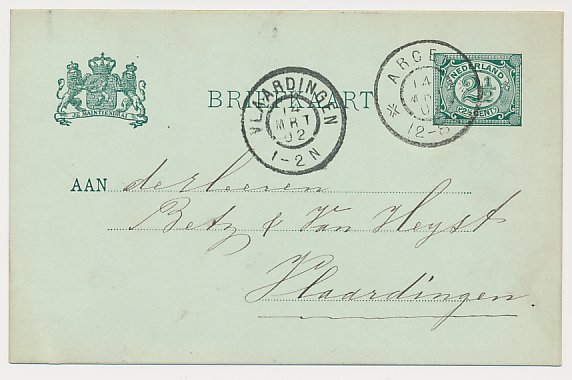 JE MAINTIENDRAI
BRIEFKAART
VLAARDINGEN
14
MRT
02
1-2N
ARCE
14
MR
12-
NEDERLAND
2½
CENT
AAN de Heeren
Betz & Van Heyst
Vlaardingen